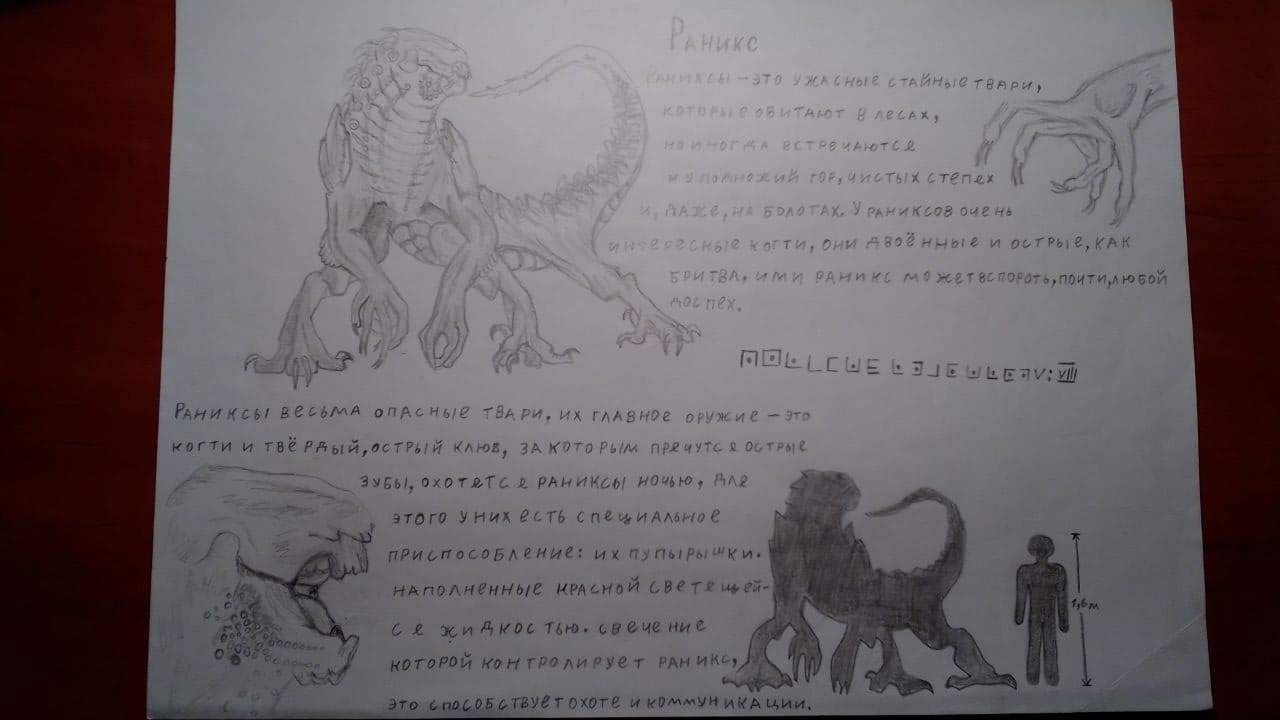 Раникс
Раниксы – это ужасные стайные твари,
которые обитают в лесах,
но иногда встречаются
и у подножий гор, чистых степех
и, даже, на болотах. У раниксов очень
интересные когти, они двоённые и острые, как
бритва, ими раникс может вспороть, почти, любой
доспех.
V: VIII
Раниксы весьма опасные твари, их главное оружие – это
когти и твёрдый, острый клюв, за которым пречутсе острые
зубы, охотетсе раниксы ночью, дле
этого у них есть специальное
приспособление: их пупырышки.
наполненные красной светещей-
се жидкостью. свечение
которой контролирует раникс,
это способствует охоте и коммуникации.
1,6м